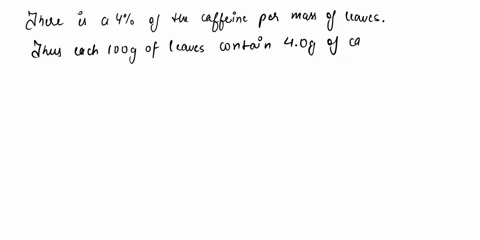 There is a 4% of the caffeine per mass of leaves.
Thus each 100g of leaves contain 4.0g of ca